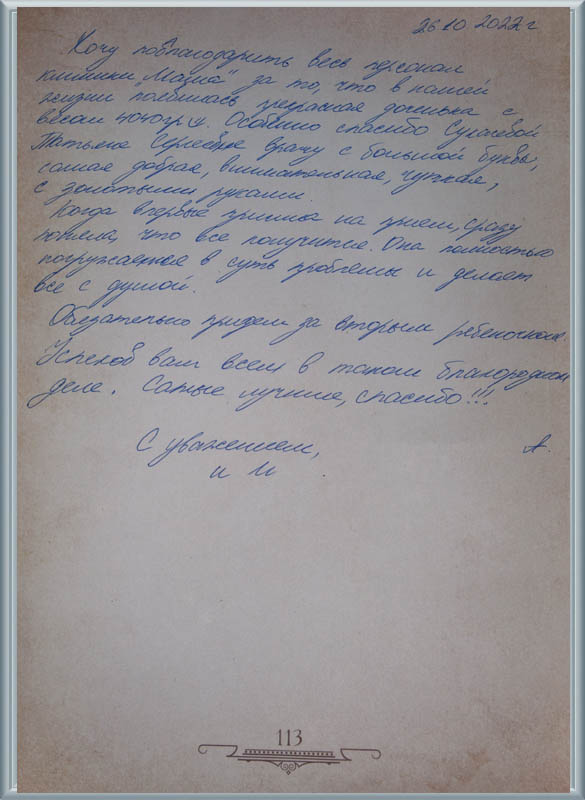 26.10.2022 г
Хочу поблагодарить весь персонал
клиники "Мазма" за то, что в нашей
жизни появилась прекрасная доченька с
весом 4040гр. Особенно спасибо Сукачевой
Татьяне Сергеевне врачу с большой буквы,
самая добрая, внимательная, чуткая,
с золотыми руками.
Когда впервые пришла на прием, сразу
поняла, что все получится. Она полностью
погружается в суть проблемы и делает
все с душой.
Обязательно придем за вторым ребеночком.
Успехов вам всем в таком благородном
деле. Самые лучшие, спасибо!!!
С уважением, А.
и И
113